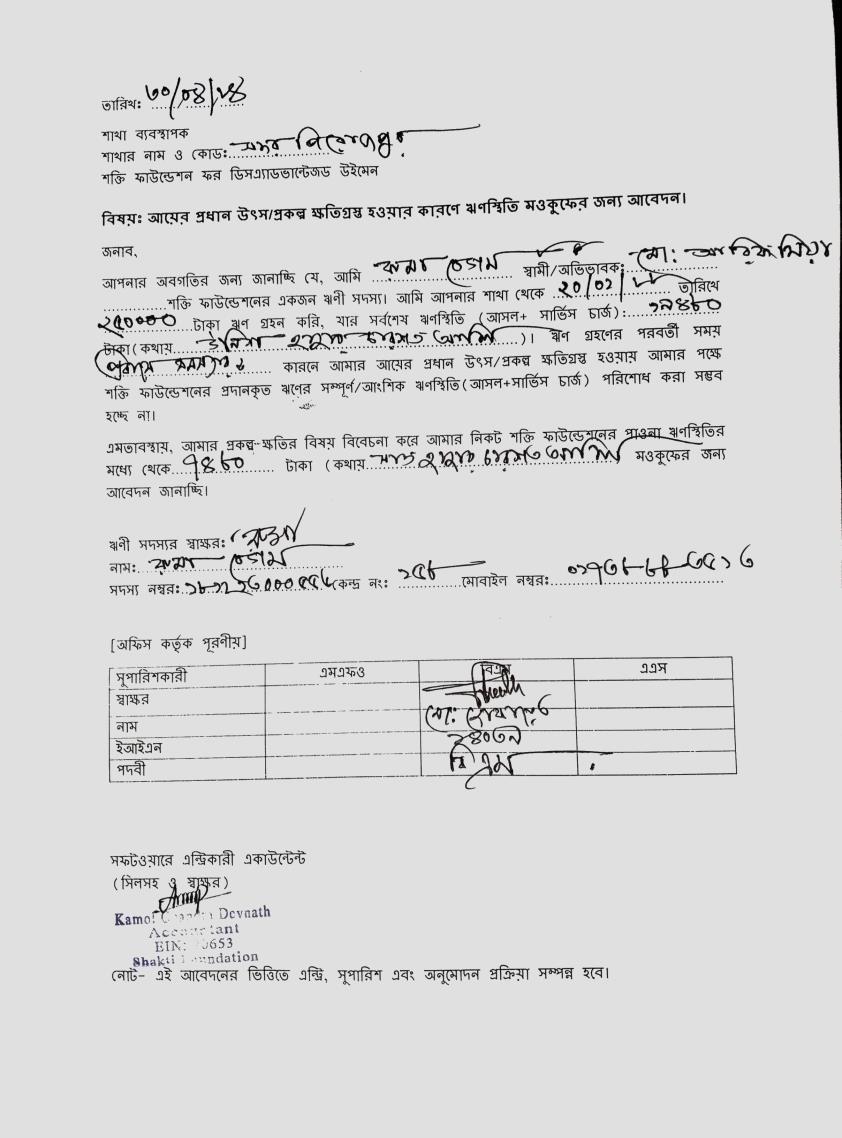 তারিখ: ৩০/০৪/২৪
শাখা ব্যবস্থাপক
শাখার নাম ও কোড:
শক্তি ফাউন্ডেশন ফর ডিসএ্যাডভান্টেজড উইমেন
বিষয়: আয়ের প্রধান উৎস/প্রকল্প ক্ষতিগ্রস্ত হওয়ার কারণে ঋণস্থিতি মওকুফের জন্য আবেদন।
জনাব,
আপনার অবগতির জন্য জানাচ্ছি যে, আমি বেগম স্বামী/অভিভাবক: মো: আরিফ মিয়া
শক্তি ফাউন্ডেশনের একজন ঋণী সদস্য। আমি আপনার শাখা থেকে তারিখে
২৫০০০০ টাকা ঋণ গ্রহন করি, যার সর্বশেষ ঋণস্থিতি (আসল+ সার্ভিস চার্জ): ১৯৪৮০
টাকা (কথায় উনিশ হাজার চারশত আশি )। ঋণ গ্রহণের পরবর্তী সময়
কারনে আমার আয়ের প্রধান উৎস/প্রকল্প ক্ষতিগ্রস্ত হওয়ায় আমার পক্ষে
শক্তি ফাউন্ডেশনের প্রদানকৃত ঋণের সম্পূর্ণ/আংশিক ঋণস্থিতি(আসল+সার্ভিস চার্জ) পরিশোধ করা সম্ভব
হচ্ছে না।
এমতাবস্থায়, আমার প্রকল্প-ক্ষতির বিষয় বিবেচনা করে আমার নিকট শক্তি ফাউন্ডেশনের পাওনা ঋণস্থিতির
মধ্যে থেকে ৭৪৮০ টাকা (কথায় সাত হাজার চারশত আশি মওকুফের জন্য
আবেদন জানাচ্ছি।
ঋণী সদস্যর স্বাক্ষর:
নাম: বেগম
সদস্য নম্বর: কেন্দ্র নং: ২৫৮ মোবাইল নম্বর:
[অফিস কর্তৃক পূরণীয়]
সুপারিশকারী এমএফও বিএম এএস
স্বাক্ষর
নাম মো:
ইআইএন
পদবী বি এম
সফটওয়ারে এন্ট্রিকারী একাউন্টেন্ট
(সিলসহ ও স্বাক্ষর)
Devnath
Accountant
EIN:
Shakti Foundation
নোট- এই আবেদনের ভিত্তিতে এন্ট্রি, সুপারিশ এবং অনুমোদন প্রক্রিয়া সম্পন্ন হবে।